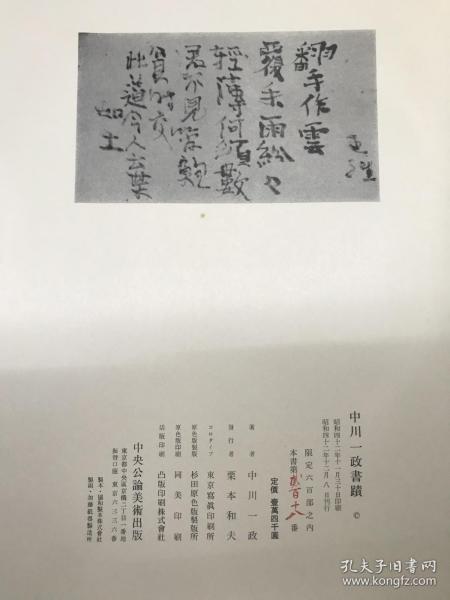 翻手作雲
覆手雨紛々
輕薄何須數
君不見管鮑
貧時交
此道今人棄
如土
中川一政書蹟 ©
昭和四十二年十一月三十日印刷
昭和四十二年十二月八日刊行
限定六百部之内
本書第貳百十八番
定價 壹萬四千圓
著者 中川一政
發行者 栗本和夫
コロタイプ 東京寫眞印刷所
原色版製版 杉田原色版製版所
原色版印刷 岡美印刷
活版印刷 凸版印刷株式會社
中央公論美術出版
東京都中央區京橋二丁目一番地
振替口座 東京六三三六番
製本・協和製本株式會社
製函・加藤紙器製造所
孔夫子旧书网